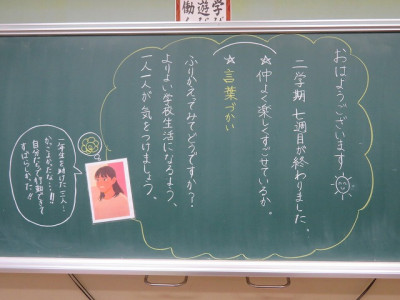 学び
遊び
働く
おはようございます
二学期 七週目が終わりました。
☆仲よく楽しくすごせているか。
☆言葉づかい
ふりかえってみてどうですか?
よりよい学校生活になるよう、
一人一人が気をつけましょう。
一年生を助けた二人…
かっこよかったな…!!
自分たちで行動できて
すばらしかった!!